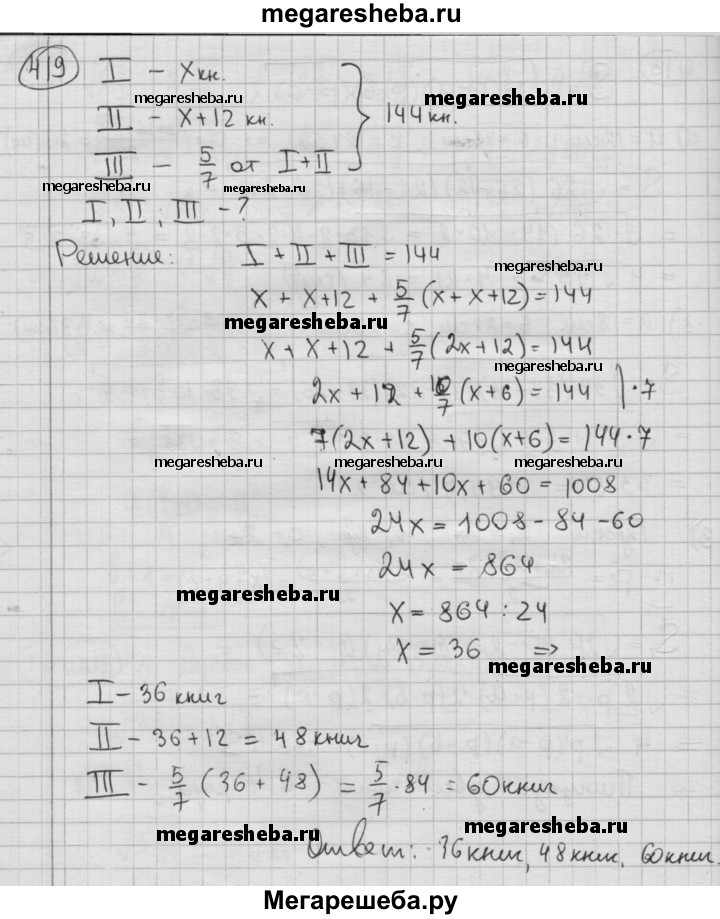 megaresheba.ru
419 I – x кн.
megaresheba.ru megaresheba.ru
II – x+12 кн. 144 кн.
III – 5/7 от I+II
megaresheba.ru megaresheba.ru
I, II, III – ?
Решение: I + II + III = 144
megaresheba.ru
x + x+12 + 5/7 (x + x+12) = 144
megaresheba.ru
x + x+12 + 5/7 (2x+12) = 144
megaresheba.ru
2x + 12 + 10/7 (x+6) = 144 | ·7
7(2x+12) + 10(x+6) = 144·7
megaresheba.ru megaresheba.ru megaresheba.ru
14x + 84 + 10x + 60 = 1008
24x = 1008 - 84 - 60
24x = 864
megaresheba.ru
x = 864 : 24
x = 36 =>
megaresheba.ru
I – 36 книг
II – 36+12 = 48 книг
III – 5/7 (36 + 48) = 5/7 · 84 = 60 книг
megaresheba.ru megaresheba.ru
Ответ: 36 книг, 48 книг, 60 книг.
Мегарешеба.ру